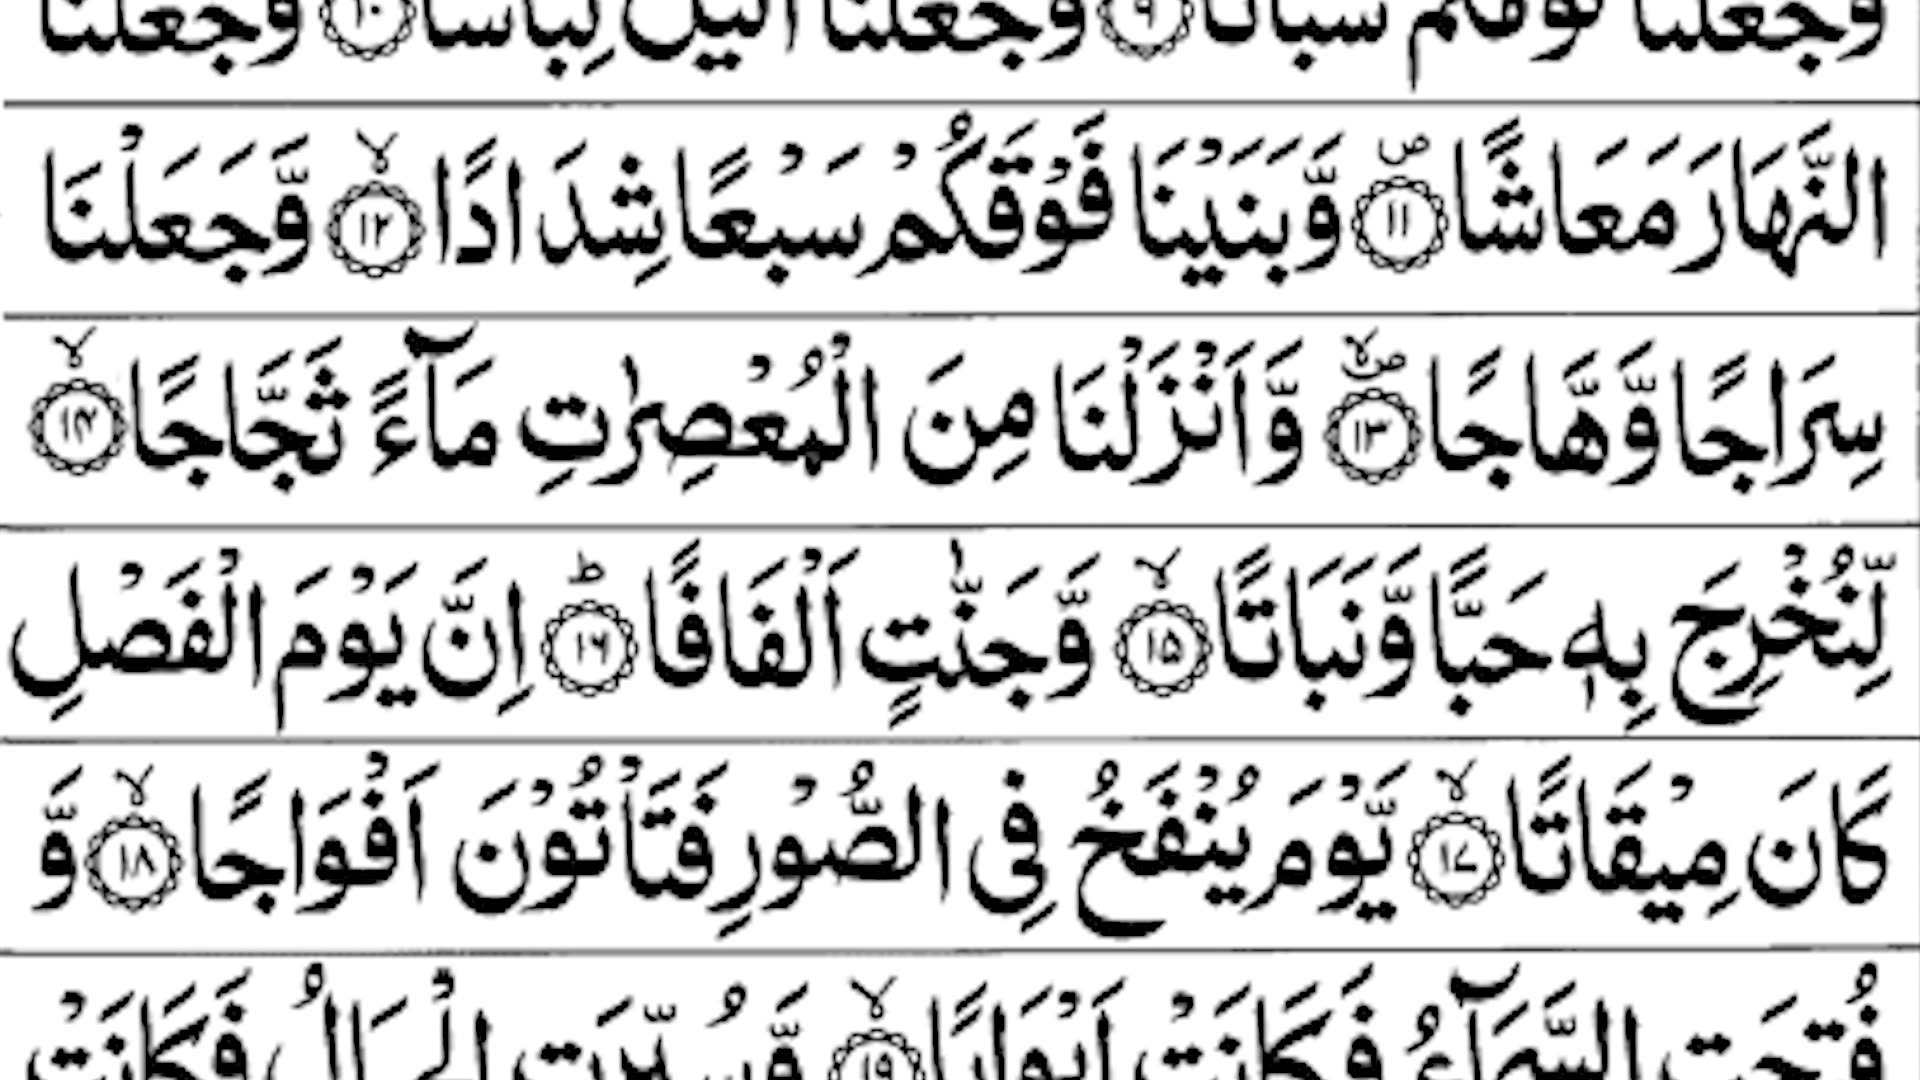 وَّجَعَلْنَا نَوْمَكُمْ سُبَاتًا ۙ﴿۹﴾ وَّجَعَلْنَا الَّيْلَ لِبَاسًا ۙ﴿۱۰﴾ وَّجَعَلْنَا
النَّهَارَ مَعَاشًا ۪﴿۱۱﴾ وَّبَنَيْنَا فَوْقَكُمْ سَبْعًا شِدَادًا ۙ﴿۱۲﴾ وَّجَعَلْنَا
سِرَاجًا وَّهَّاجًا ۪ۙ﴿۱۳﴾ وَّاَنْزَلْنَا مِنَ الْمُعْصِرٰتِ مَآءً ثَجَّاجًا ۙ﴿۱۴﴾
لِّنُخْرِجَ بِهٖ حَبًّا وَّنَبَاتًا ۙ﴿۱۵﴾ وَّجَنّٰتٍ اَلْفَافًا ؕ﴿۱۶﴾ اِنَّ يَوْمَ الْفَصْلِ
كَانَ مِيْقَاتًا ۙ﴿۱۷﴾ يَّوْمَ يُنْفَخُ فِى الصُّوْرِ فَتَاْتُوْنَ اَفْوَاجًا ۙ﴿۱۸﴾ وَّ
فُتِحَتِ السَّمَآءُ فَكَانَتْ اَبْوَابًا ۙ﴿۱۹﴾ وَّسُيِّرَتِ الْجِبَالُ فَكَانَتْ